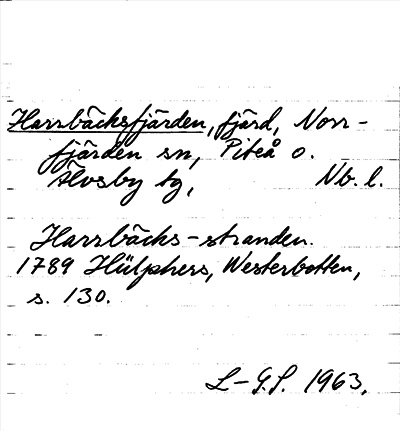 Harrbäcksfjärden, fjärd, Norr-
fjärden sn, Piteå o.
Älvsby tg, Nb. l.
Harrbäcks-stranden.
1789 Hülphers, Westerbotten,
s. 130.
L-G.S. 1963.